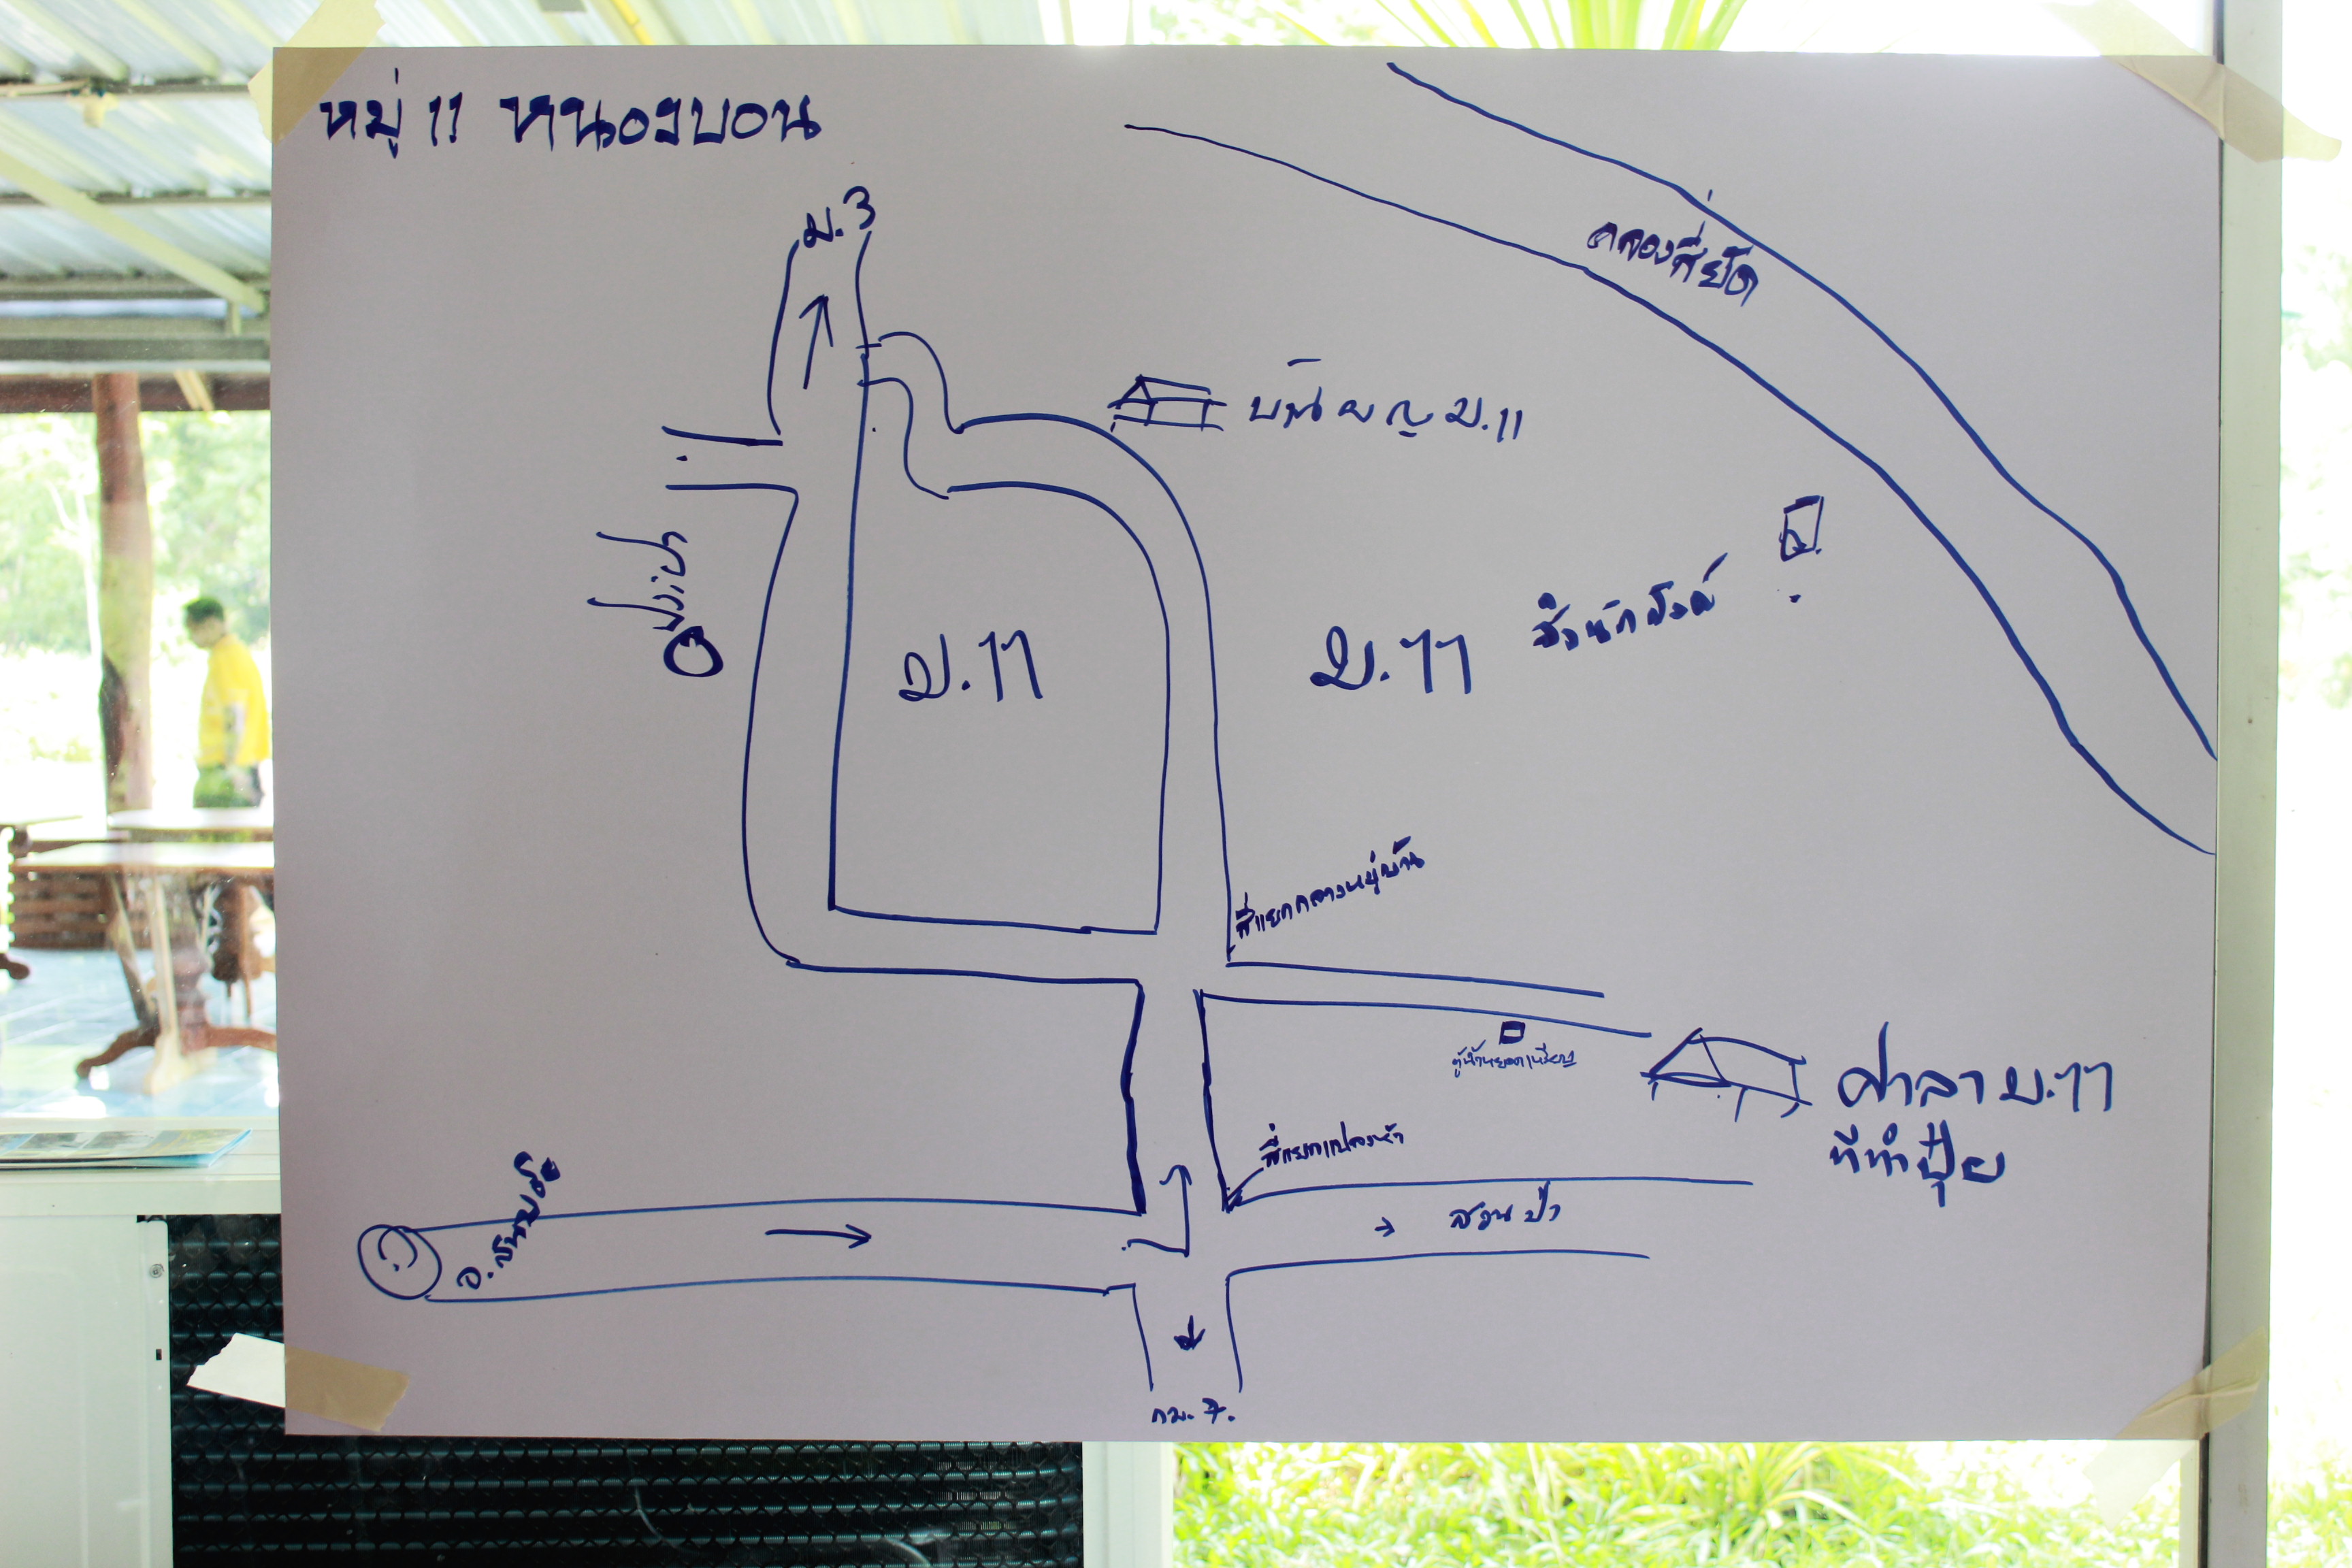 หมู่ 11 หนองบอน
ม.3
คลองสียัด
บ้าน ผญ ม.11
ม.11
ม.11 สำนักสงฆ์
สี่แยกกลางหมู่บ้าน
ตู้น้ำหยอดเหรียญ
ศาลา ม.11
ที่ทำปุ๋ย
สี่แยกแปลงหญ้า
อ.สนามชัย
สวนป่า
กม.7.